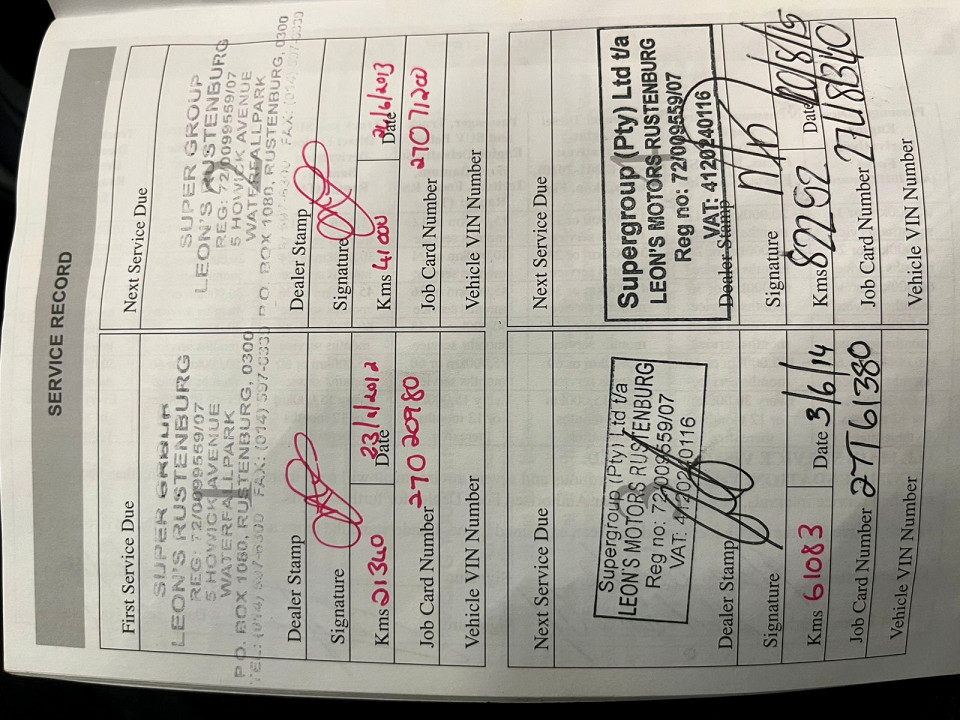 SERVICE RECORD
First Service Due
SUPER GROUP
LEON'S RUSTENBURG
REG: 72/0099559/07
5 HOWICK AVENUE
WATERFALLPARK
P.O. BOX 1080, RUSTENBURG, 0300
TEL: (014) 597-0330 FAX: (014) 597-0330
Dealer Stamp
Signature
Kms 21340 Date 23/2/2012
Job Card Number 27020980
Vehicle VIN Number
Next Service Due
SUPER GROUP
LEON'S RUSTENBURG
REG: 72/0099559/07
5 HOWICK AVENUE
WATERFALLPARK
P.O. BOX 1080, RUSTENBURG, 0300
FAX: (014) 597-0330
Dealer Stamp
Signature
Kms 41000 Date 21/6/2013
Job Card Number 27071200
Vehicle VIN Number
Next Service Due
Supergroup (Pty) Ltd t/a
LEON'S MOTORS RUSTENBURG
Reg no: 72/009559/07
VAT: 4120240116
Dealer Stamp
Signature
Kms 61083 Date 3/6/14
Job Card Number 27T61380
Vehicle VIN Number
Next Service Due
Supergroup (Pty) Ltd t/a
LEON'S MOTORS RUSTENBURG
Reg no: 72/009559/07
VAT: 4120240116
Dealer Stamp
Signature
Kms 82292 Date
Job Card Number 27418340
Vehicle VIN Number